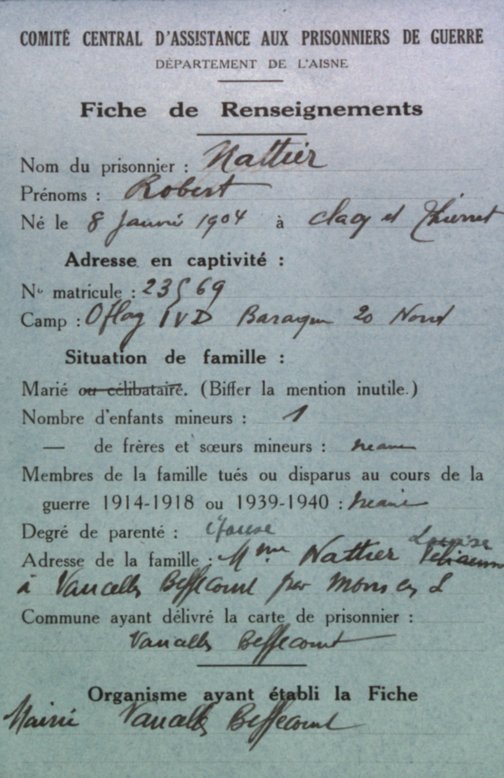 COMITÉ CENTRAL D'ASSISTANCE AUX PRISONNIERS DE GUERRE
DÉPARTEMENT DE L'AISNE
Fiche de Renseignements
Nom du prisonnier : Nattier
Prénoms : Robert
Né le 8 Janvié 1904 à Clacy et Thierret
Adresse en captivité :
N° matricule : 23569
Camp : Oflag IVD Baraque 20 Nord
Situation de famille :
Marié ou célibataire. (Biffer la mention inutile.)
Nombre d'enfants mineurs : 1
— de frères et sœurs mineurs :
Membres de la famille tués ou disparus au cours de la
guerre 1914-1918 ou 1939-1940 :
Degré de parenté :
Adresse de la famille : Mme Nattier Louise
à Vaucelles Beffecourt par Mons en L
Commune ayant délivré la carte de prisonnier :
Vaucelles Beffecourt
Organisme ayant établi la Fiche
Mairie Vaucelles Beffecourt